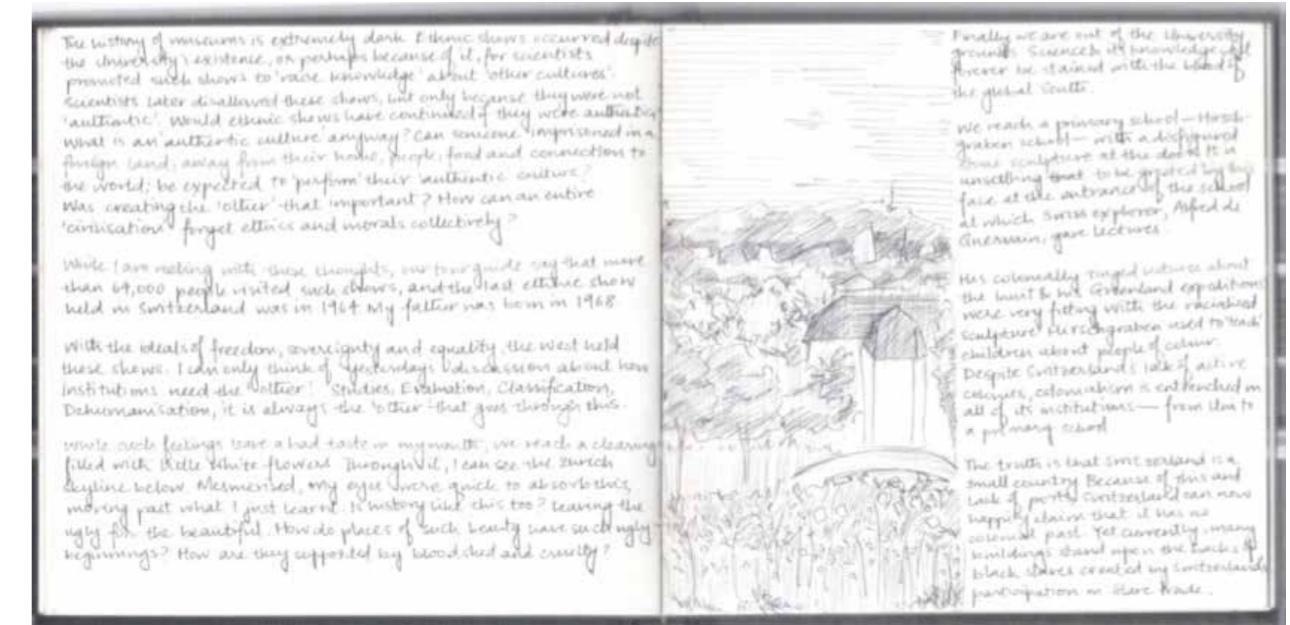 The history of museums is extremely dark. Ethnic shows occurred despite
the University's existence, or perhaps because of it, for scientists
promoted such shows to 'raise knowledge' about 'other cultures'.
Scientists later disallowed these shows, but only because they were not
'authentic'. Would ethnic shows have continued if they were authentic?
What is an 'authentic culture' anyway? Can someone imprisoned in a
foreign land, away from their home, people, food and connection to
the world; be expected to 'perform' their 'authentic culture'?
Was creating the 'other' that important? How can an entire
'civilisation' forget ethics and morals collectively?
While I am reeling with these thoughts, our tour guide say that more
than 64,000 people visited such shows, and the last ethnic show
held in Switzerland was in 1964. My father was born in 1968.
With the ideals of freedom, sovereignty and equality, the West held
these shows. I can only think of yesterday's discussion about how
institutions need the 'other'. Studies, Evaluation, Classification,
Dehumanisation, it is always the 'other' that goes through this.
While such feelings leave a bad taste in my mouth, we reach a clearing
filled with little white flowers. Through it, I can see the Zurich
skyline below. Mesmerised, my eyes were quick to absorb this,
moving past what I just learnt. Is history like this too? Leaving the
ugly for the beautiful. How do places of such beauty have such ugly
beginnings? How are they supported by bloodshed and cruelty?
Finally we are out of the University
grounds. Science & its knowledge will
forever be stained with the blood of
the global South.
We reach a primary school — Hirsch-
graben school — with a disfigured
sculpture at the door. It is
unsettling that to be greeted by his
face at the entrance of the school
at which Swiss explorer, Alfred de
Quervain, gave lectures.
His colonially tinged lectures about
the Inuit & his Greenland expeditions
were very fitting with the racialised
sculpture Hirschgraben used to 'teach'
children about people of colour.
Despite Switzerland's lack of active
colonies, colonialism is entrenched in
all of its institutions — from Uni to
a primary school.
The truth is that Switzerland is a
small country. Because of this and
lack of ports, Switzerland can now
happily claim that it has no
colonial past. Yet currently, many
buildings stand upon the backs of
black slaves created by Switzerland's
participation in slave trade.